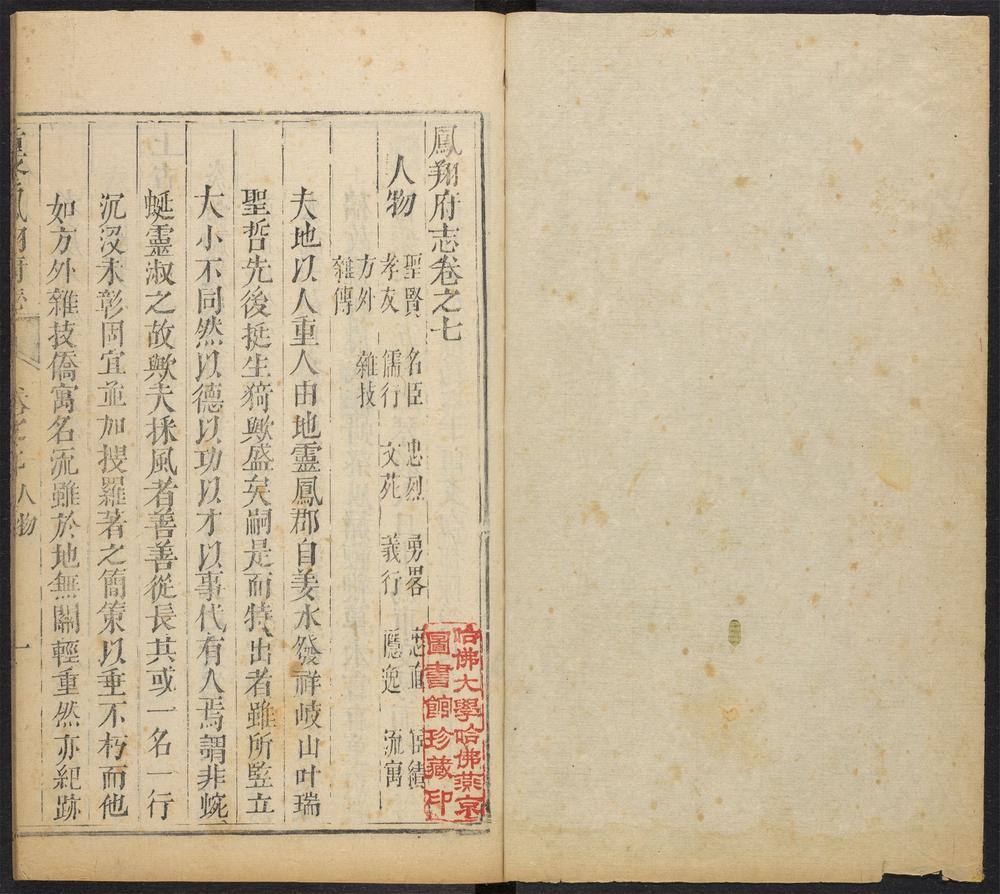 鳳翔府志卷之七
人物
聖賢 名臣 忠烈 勇畧 忠直 宦績
孝友 儒行 文苑 義行 隱逸 流寓
方外 雜技
雜傳
夫地以人重人由地靈鳳郡自姜水發祥岐山叶瑞
聖哲先後挺生猗歟盛矣嗣是而特出者雖所竪立
大小不同然以德以功以才以事代有人焉謂非蜿
蜒靈淑之故歟夫採風者善善從長其或一名一行
沉沒未彰固宜並加搜羅著之簡策以垂不朽而他
如方外雜技僑寓名流雖於地無關輕重然亦紀跡
重修鳳翔府志 卷之七 人物 一
哈佛大學哈佛燕京
圖書館珍藏印